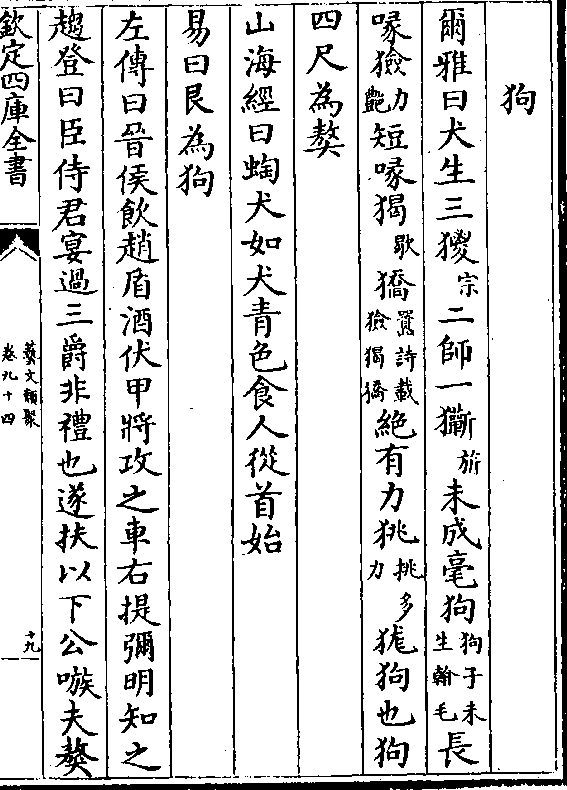 狗
爾雅曰犬生三猣宗二師一獑旂未成毫狗狗子未生翰毛長
喙獫力艷短喙猲歇獢驕詩載獫猲獢絕有力狣挑力多狵狗也狗
四尺為獒
山海經曰蜪犬如犬青色食人從首始
易曰艮為狗
左傳曰晉侯飲趙盾酒伏甲將攻之車右提彌明知之
趨登曰臣侍君宴過三爵非禮也遂扶以下公嗾夫獒
欽定四庫全書
藝文類聚
卷九十四
十九